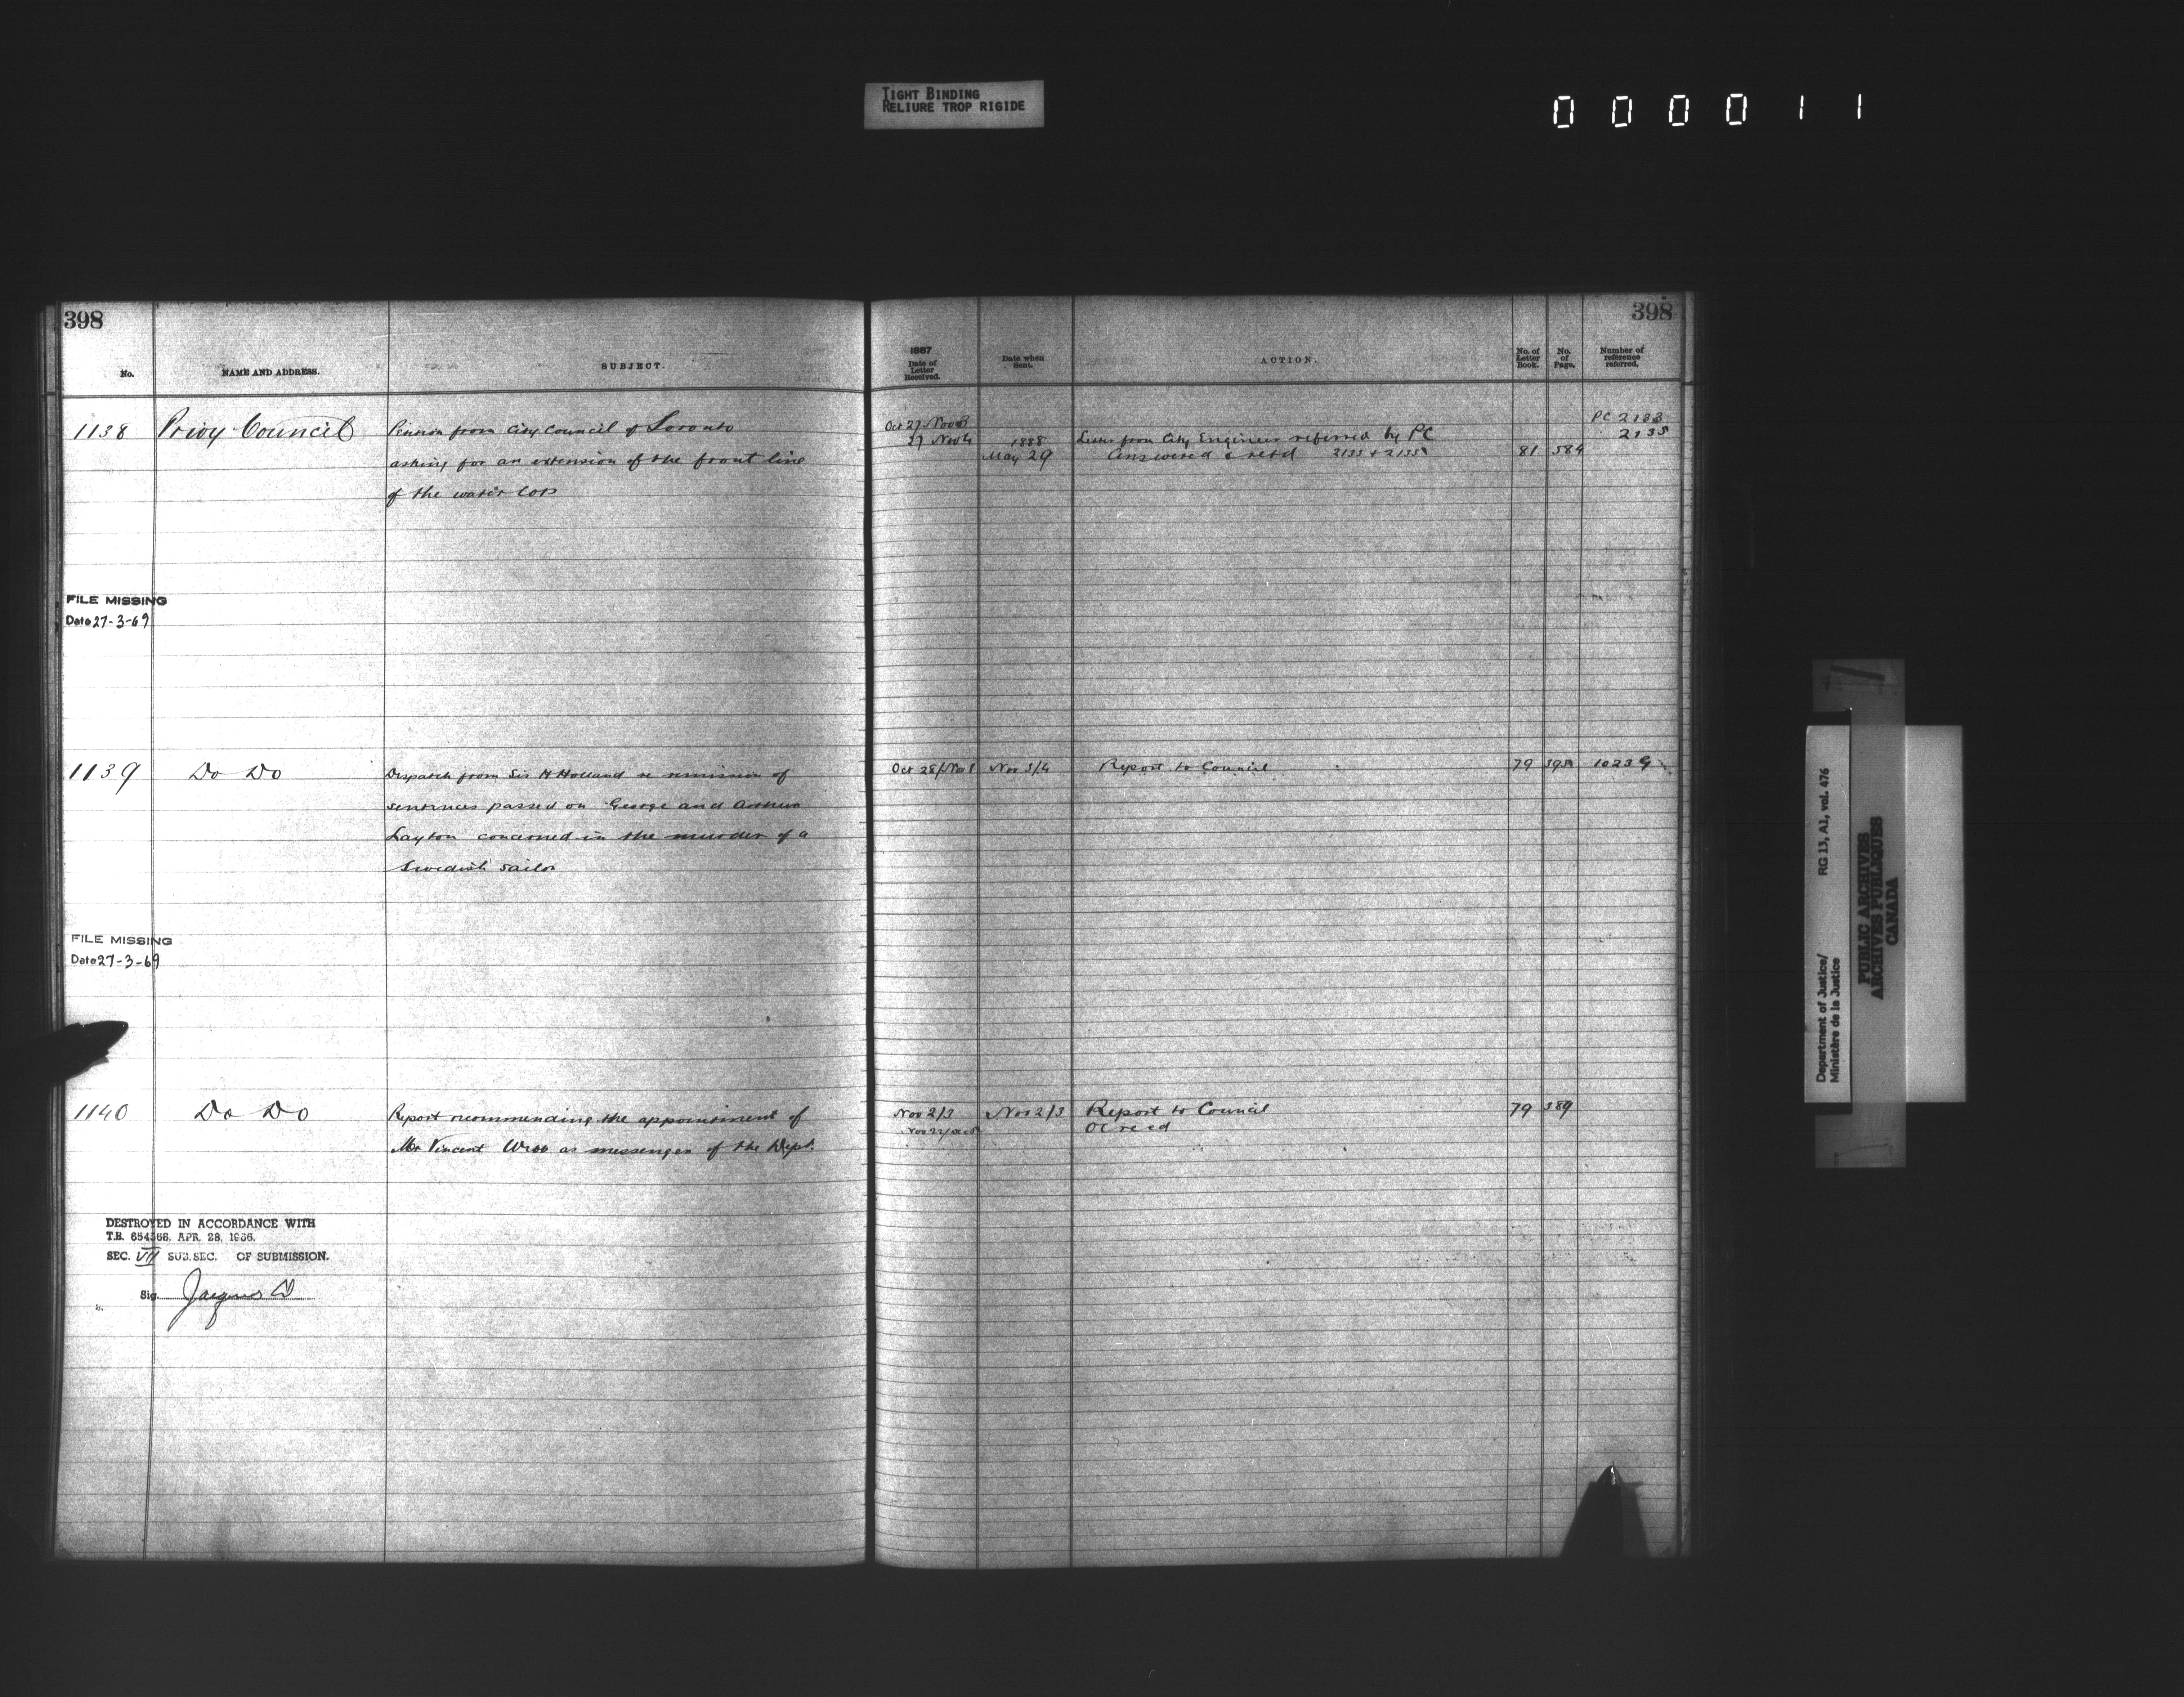 TIGHT BINDING
RELIURE TROP RIGIDE
000011
398
No.
NAME AND ADDRESS.
SUBJECT.
1138 Privy Council Petition from City Council of Toronto
asking for an extension of the front line
of the water lots
FILE MISSING
Date 27-3-69
1139 Do Do Dispatch from Sir H Holland re remission of
sentences passed on George and Arthur
Layton concerned in the murder of a
Swedish sailor
FILE MISSING
Date 27-3-69
1140 Do Do Report recommending the appointment of
Mr Vincent Webb as messenger of the Dept.
DESTROYED IN ACCORDANCE WITH
T.B. 654368, APR. 28, 1936.
SEC. VII SUB. SEC. OF SUBMISSION.
Sig.
398
1887
Date of
Letter
Received.
Date when
Sent.
ACTION.
No. of
Letter
Book.
No.
of
Page.
Number of
reference
referred.
Oct 27 PC 2133
27 Nov 4 1888 Letter from City Engineer referred by PC 2135
May 29 Answered & retd 2133 + 2135 81 584
Oct 28/Nov 1 Nov 3/4 Report to Council 79 1023 G
Nov 2/3 Nov 2/3 Report to Council 79 389
Nov 22 OC recd
Department of Justice/
Ministère de la Justice
RG 13, A1, vol. 476
PUBLIC ARCHIVES
ARCHIVES PUBLIQUES
CANADA